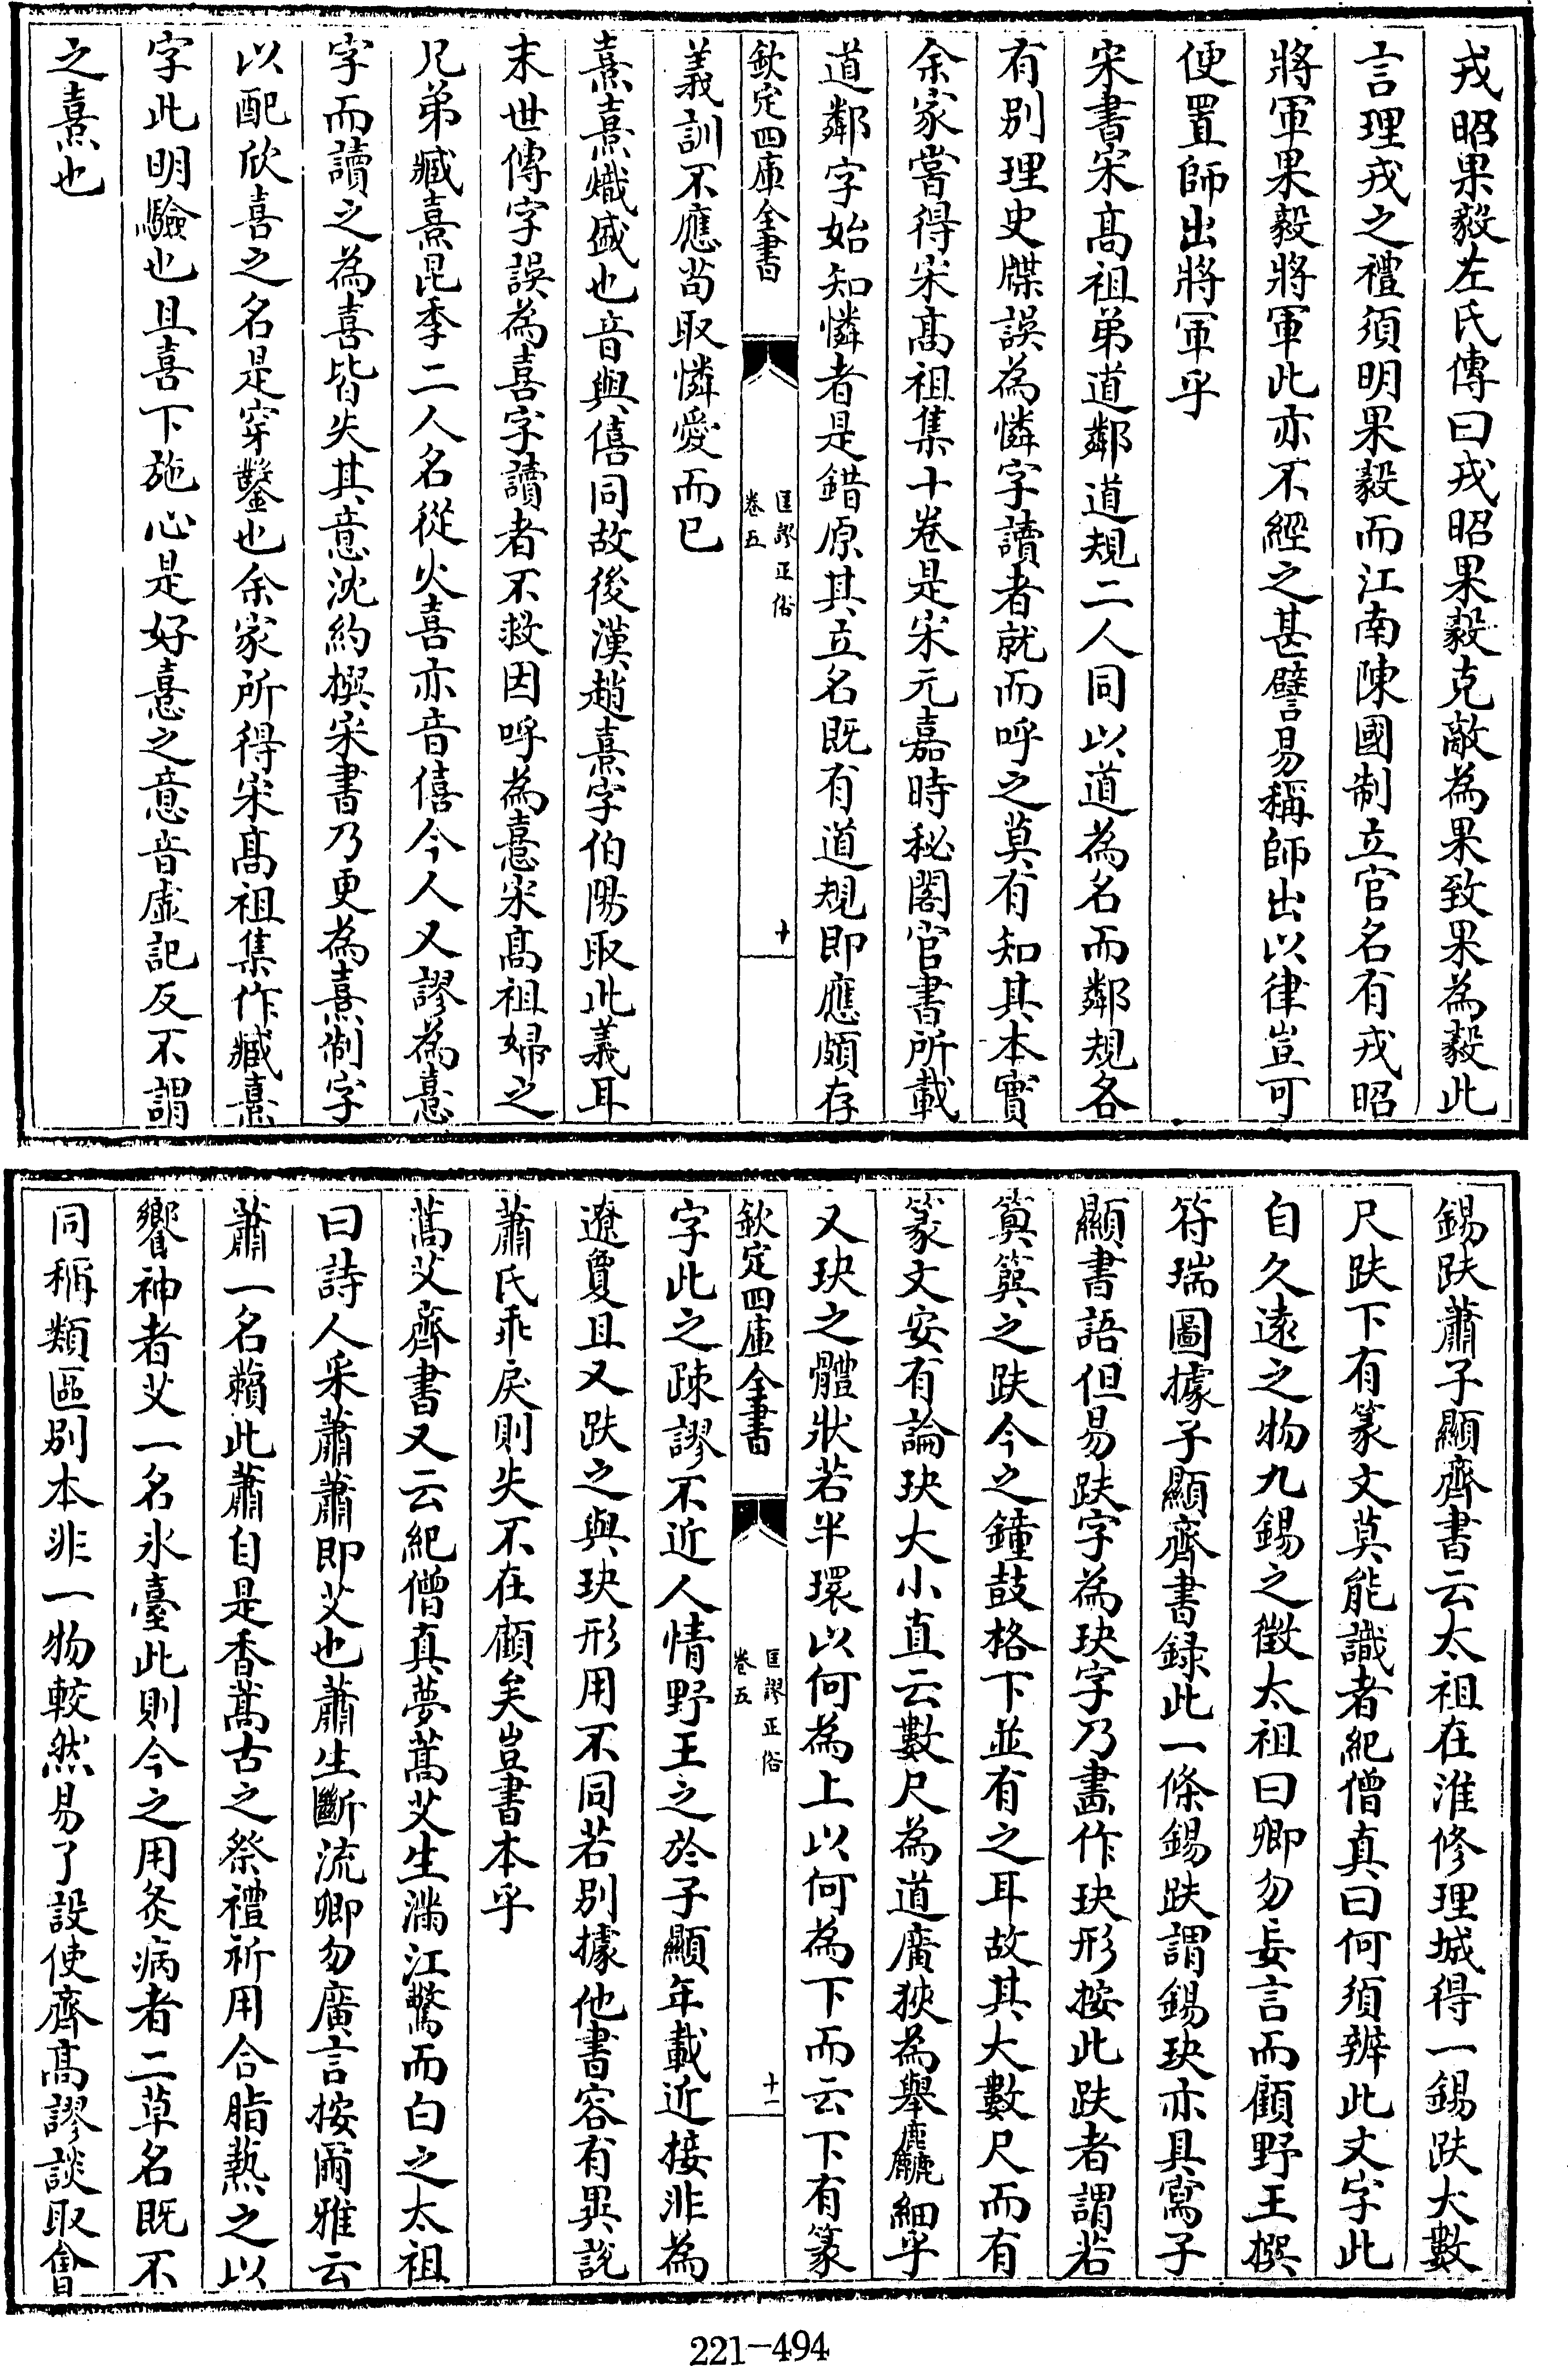 戎昭果毅左氏傳曰戎昭果毅克敵為果致果為毅此
言理戎之禮須明果毅而江南陳國制立官名有戎昭
將軍果毅將軍此亦不經之甚譬易稱師出以律豈可
便置師出將軍乎
宋書宋髙祖弟道鄰道規二人同以道為名而鄰規各
有別理史牒誤為憐字讀者就而呼之莫有知其本實
余家嘗得宋髙祖集十卷是宋元嘉時秘閣官書所載
道鄰字始知憐者是錯原其立名既有道規即應頗存
欽定四庫全書
匡謬正俗
卷五
十
義訓不應茍取憐愛而已
熹熹熾盛也音與僖同故後漢趙熹字伯陽取此義耳
末世傳字誤為喜字讀者不救因呼為憙宋髙祖婦之
兄弟臧熹昆季二人名從火喜亦音僖今人又謬為憙
字而讀之為喜皆失其意沈約撰宋書乃更為熹制字
以配欣喜之名是穿鑿也余家所得宋髙祖集作臧熹
字此明驗也且喜下施心是好憙之意音虛記反不謂
之熹也
錫趺蕭子顯齊書云太祖在淮修理城得一錫趺大數
尺趺下有篆文莫能識者紀僧真曰何須辨此文字此
自久遠之物九錫之徵太祖曰卿勿妄言而顧野王撰
符瑞圖據子顯齊書録此一條錫趺謂錫玦亦具寫子
顯書語但易趺字為玦字乃畫作玦形按此趺者謂若
簨簴之趺今之鐘鼓格下並有之耳故其大數尺而有
篆文安有論玦大小直云數尺為道廣狹為舉麤細乎
又玦之體狀若半環以何為上以何為下而云下有篆
欽定四庫全書
匡謬正俗
卷五
十一
字此之疎謬不近人情野王之於子顯年載近接非為
遼敻且又趺之與玦形用不同若別據他書容有異說
蕭氏乖戾則失不在顧矣豈書本乎
蒿艾齊書又云紀僧真夢蒿艾生滿江驚而白之太祖
曰詩人采蕭蕭即艾也蕭生斷流卿勿廣言按爾雅云
蕭一名萩此蕭自是香蒿古之祭禮祈用合脂爇之以
饗神者艾一名氷臺此則今之用灸病者二草名既不
同稱類區別本非一物較然易了設使齊髙謬談取會
221-494